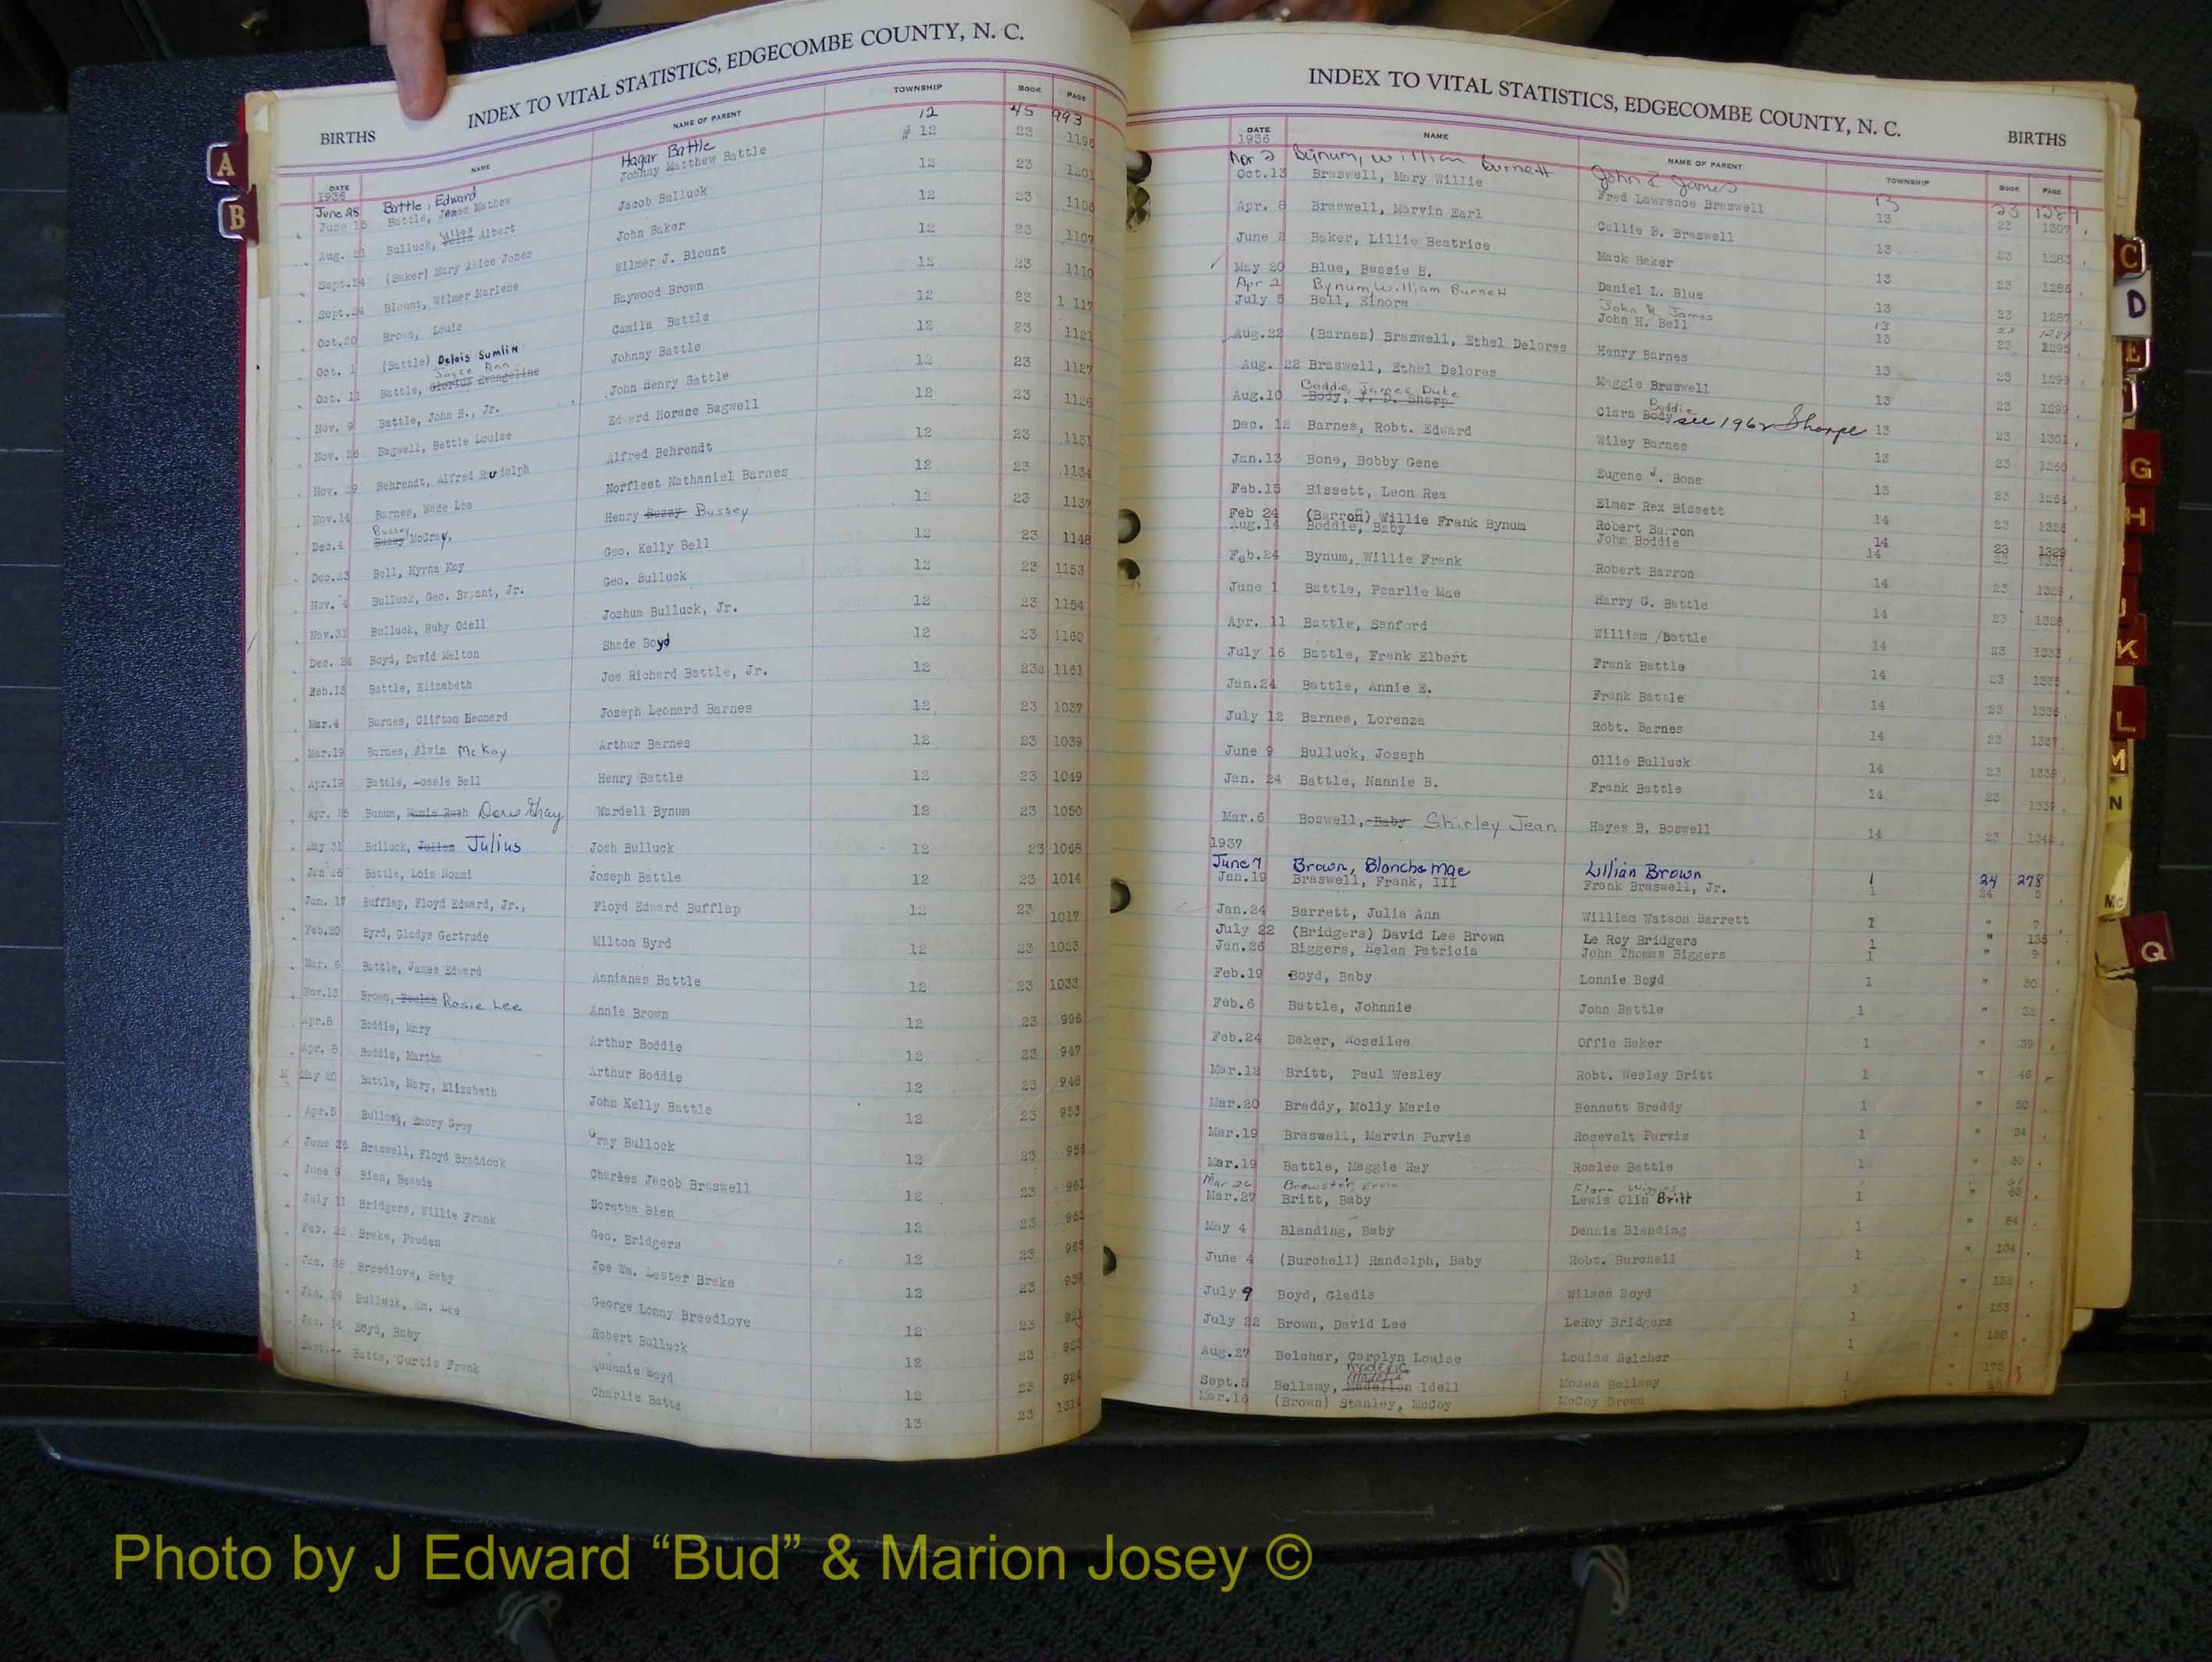 INDEX TO VITAL STATISTICS, EDGECOMBE COUNTY, N. C.
BIRTHS
DATE NAME NAME OF PARENT TOWNSHIP BOOK PAGE
1936
June 28 Battle, Edward Hagar Battle 12 45 993
June 15 Battle, James Mathew Johnny Matthew Battle # 12 23 1196
Aug. 21 Bulluck, Albert Jacob Bulluck 12 23 1201
Sept.14 (Baker) Mary Alice Jones John Baker 12 23 1106
Sept.24 Blount, Wilmer Marlene Wilmer J. Blount 12 23 1107
Oct.20 Brown, Louis Haywood Brown 12 23 1110
Oct. 1 (Battle) Delois Sumlin Camila Battle 12 23 1 117
Oct. 11 Battle, Glorius Evangeline Joyce Ann Johnny Battle 12 23 1121
Nov. 9 Battle, John H., Jr. John Henry Battle 12 23 1127
Nov. 26 Bagwell, Bettie Louise Edward Horace Bagwell 12 23 1128
Nov. 29 Behrendt, Alfred Rudolph Alfred Behrendt 12 23 1131
Nov.14 Barnes, Wade Lee Norfleet Nathaniel Barnes 12 23 1134
Dec.4 Buzzy Bussey McCray, Henry Buzzy Bussey 12 23 1137
Dec.23 Bell, Myrna Kay Geo. Kelly Bell 12 23 1148
Nov. 4 Bulluck, Geo. Bryant, Jr. Geo. Bulluck 12 23 1153
Nov.31 Bulluck, Ruby Odell Joshua Bulluck, Jr. 12 23 1154
Dec. 24 Boyd, David Melton Shade Boyd 12 23 1160
Feb.13 Battle, Elizabeth Joe Richard Battle, Jr. 12 23 1161
Mar.4 Barnes, Clifton Heonard Joseph Leonard Barnes 12 23 1037
Mar.19 Barnes, Alvin McKoy Arthur Barnes 12 23 1039
Apr.19 Battle, Lossie Bell Henry Battle 12 23 1049
Apr. 25 Bunum, Mamie Ruth Doris Gray Wardell Bynum 12 23 1050
May 31 Bulluck, Julian Julius Josh Bulluck 12 23 1068
Jan 26 Battle, Lois Noami Joseph Battle 12 23 1014
Jan. 17 Bufflap, Floyd Edward, Jr., Floyd Edward Bufflap 12 23 1017
Feb.20 Byrd, Gladys Gertrude Milton Byrd 12 23 1023
Mar. 6 Battle, James Edward Annianes Battle 12 23 1033
Nov.13 Brown, Beulah Rosie Lee Annie Brown 12 23 996
Apr.8 Boddie, Mary Arthur Boddie 12 23 947
Apr. 8 Boddie, Martha Arthur Boddie 12 23 948
May 20 Battle, Mary, Elizabeth John Kelly Battle 12 23 953
Apr.5 Bullock, Emory Gray Gray Bullock 12 23
June 25 Braswell, Floyd Braddock Charles Jacob Braswell 12 23 961
June 9 Bien, Bessie Doretha Bien 12 23 962
July 11 Bridgers, Willie Frank Geo. Bridgers 12 23 965
Feb. 22 Brake, Pruden Joe Wm. Lester Brake 12 23 939
Jan. 28 Breedlove, Baby George Lonny Breedlove 12 23 921
Jan. 19 Bulluck, Wm. Lee Robert Bulluck 12 23 923
Jan. 14 Boyd, Baby Qudenie Boyd 12 23 924
Batts, Curtis Frank Charlie Batts 13 23 1314
INDEX TO VITAL STATISTICS, EDGECOMBE COUNTY, N. C.
BIRTHS
DATE NAME NAME OF PARENT TOWNSHIP BOOK PAGE
1936
Apr 2 Bynum, William Burnett John R James 13 23 1287
Oct.13 Braswell, Mary Willie Fred Lawrence Braswell 13 23 1307
Apr. 8 Braswell, Marvin Earl Callie B. Braswell 13 23 1283
June 2 Baker, Lillie Beatrice Mack Baker 13 23 1286
May 20 Blue, Bessie B. Daniel L. Blue 13 23 1287
Apr 2 Bynum, William Burnett John R. James 13 23 1287
July 5 Bell, Elnora John H. Bell 13 23 1295
Aug.22 (Barnes) Braswell, Ethel Delores Henry Barnes 13 23 1299
Aug. 22 Braswell, Ethel Delores Maggie Braswell 13 23 1299
Aug.10 Body, J. D. Sharp Boddie, James Duke Clara Body Boddie see 1962 Sharpe 13 23 1301
Dec. 12 Barnes, Robt. Edward Wiley Barnes 13 23 1260
Jan.13 Bone, Bobby Gene Eugene J. Bone 13 23 1264
Feb.15 Bissett, Leon Rea Elmer Rex Bissett 14 23 1326
Feb 24 (Barron) Willie Frank Bynum Robert Barron 14 23 1329
Aug.14 Boddie, Baby John Boddie 14 23 1327
Feb.24 Bynum, Willie Frank Robert Barron 14 23 1329
June 1 Battle, Pearlie Mae Harry G. Battle 14 23 1328
Apr. 11 Battle, Sanford William /Battle 14 23 1333
July 16 Battle, Frank Elbert Frank Battle 14 23 1335
Jan.24 Battle, Annie E. Frank Battle 14 23 1336
July 12 Barnes, Lorenza Robt. Barnes 14 23 1337
June 9 Bulluck, Joseph Ollie Bulluck 14 23 1338
Jan. 24 Battle, Nannie B. Frank Battle 14 23 1339
Mar.6 Boswell, Baby Shirley Jean Hayes B. Boswell 14 23 1344
1937
June 7 Brown, Blanche Mae Lillian Brown 1 24 278
Jan.19 Braswell, Frank, III Frank Braswell, Jr. 1 24 5
Jan.24 Barrett, Julia Ann William Watson Barrett 1 " 7
July 22 (Bridgers) David Lee Brown Le Roy Bridgers 1 " 135
Jan.26 Biggers, Helen Patricia John Thomas Biggers 1 " 9
Feb.19 Boyd, Baby Lonnie Boyd 1 " 30
Feb.6 Battle, Johnnie John Battle 1 " 32
Feb.24 Baker, Rosellee Offie Baker 1 " 39
Mar.12 Britt, Paul Wesley Robt. Wesley Britt 1 " 46
Mar.20 Braddy, Molly Marie Bennett Braddy 1 " 50
Mar.19 Braswell, Marvin Purvis Rosevelt Purvis 1 " 54
Mar.19 Battle, Maggie Ray Roslee Battle 1 " 60
Mar 26 Brewster,
Mar.27 Britt, Baby Lewis Olin Britt 1 " 63
May 4 Blanding, Baby Dennis Blanding 1 " 84
June 4 (Burchell) Randolph, Baby Robt. Burchell 1 " 104
July 9 Boyd, Gladis Wilson Boyd 1 " 132
July 22 Brown, David Lee LeRoy Bridgers 1 " 135
Aug.27 Belcher, Carolyn Louise Louise Belcher 1 " 156
Sept.5 Bellamy, Idell Moses Bellamy 1 "
Mar.16 (Brown) Stanley, McCoy McCoy Brown
A
B
C
D
E
G
H
K
L
M
N
Mc
Q
Photo by J Edward “Bud” & Marion Josey ©